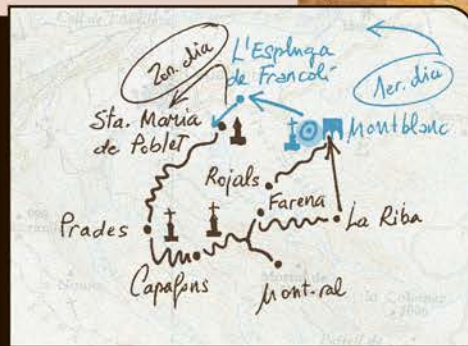 2on. dia
L'Espluga
de Francolí
1er. dia
Sta. Maria
de Poblet
Montblanc
Rojals
Farena
La Riba
Prades
Capafons
Mont-ral